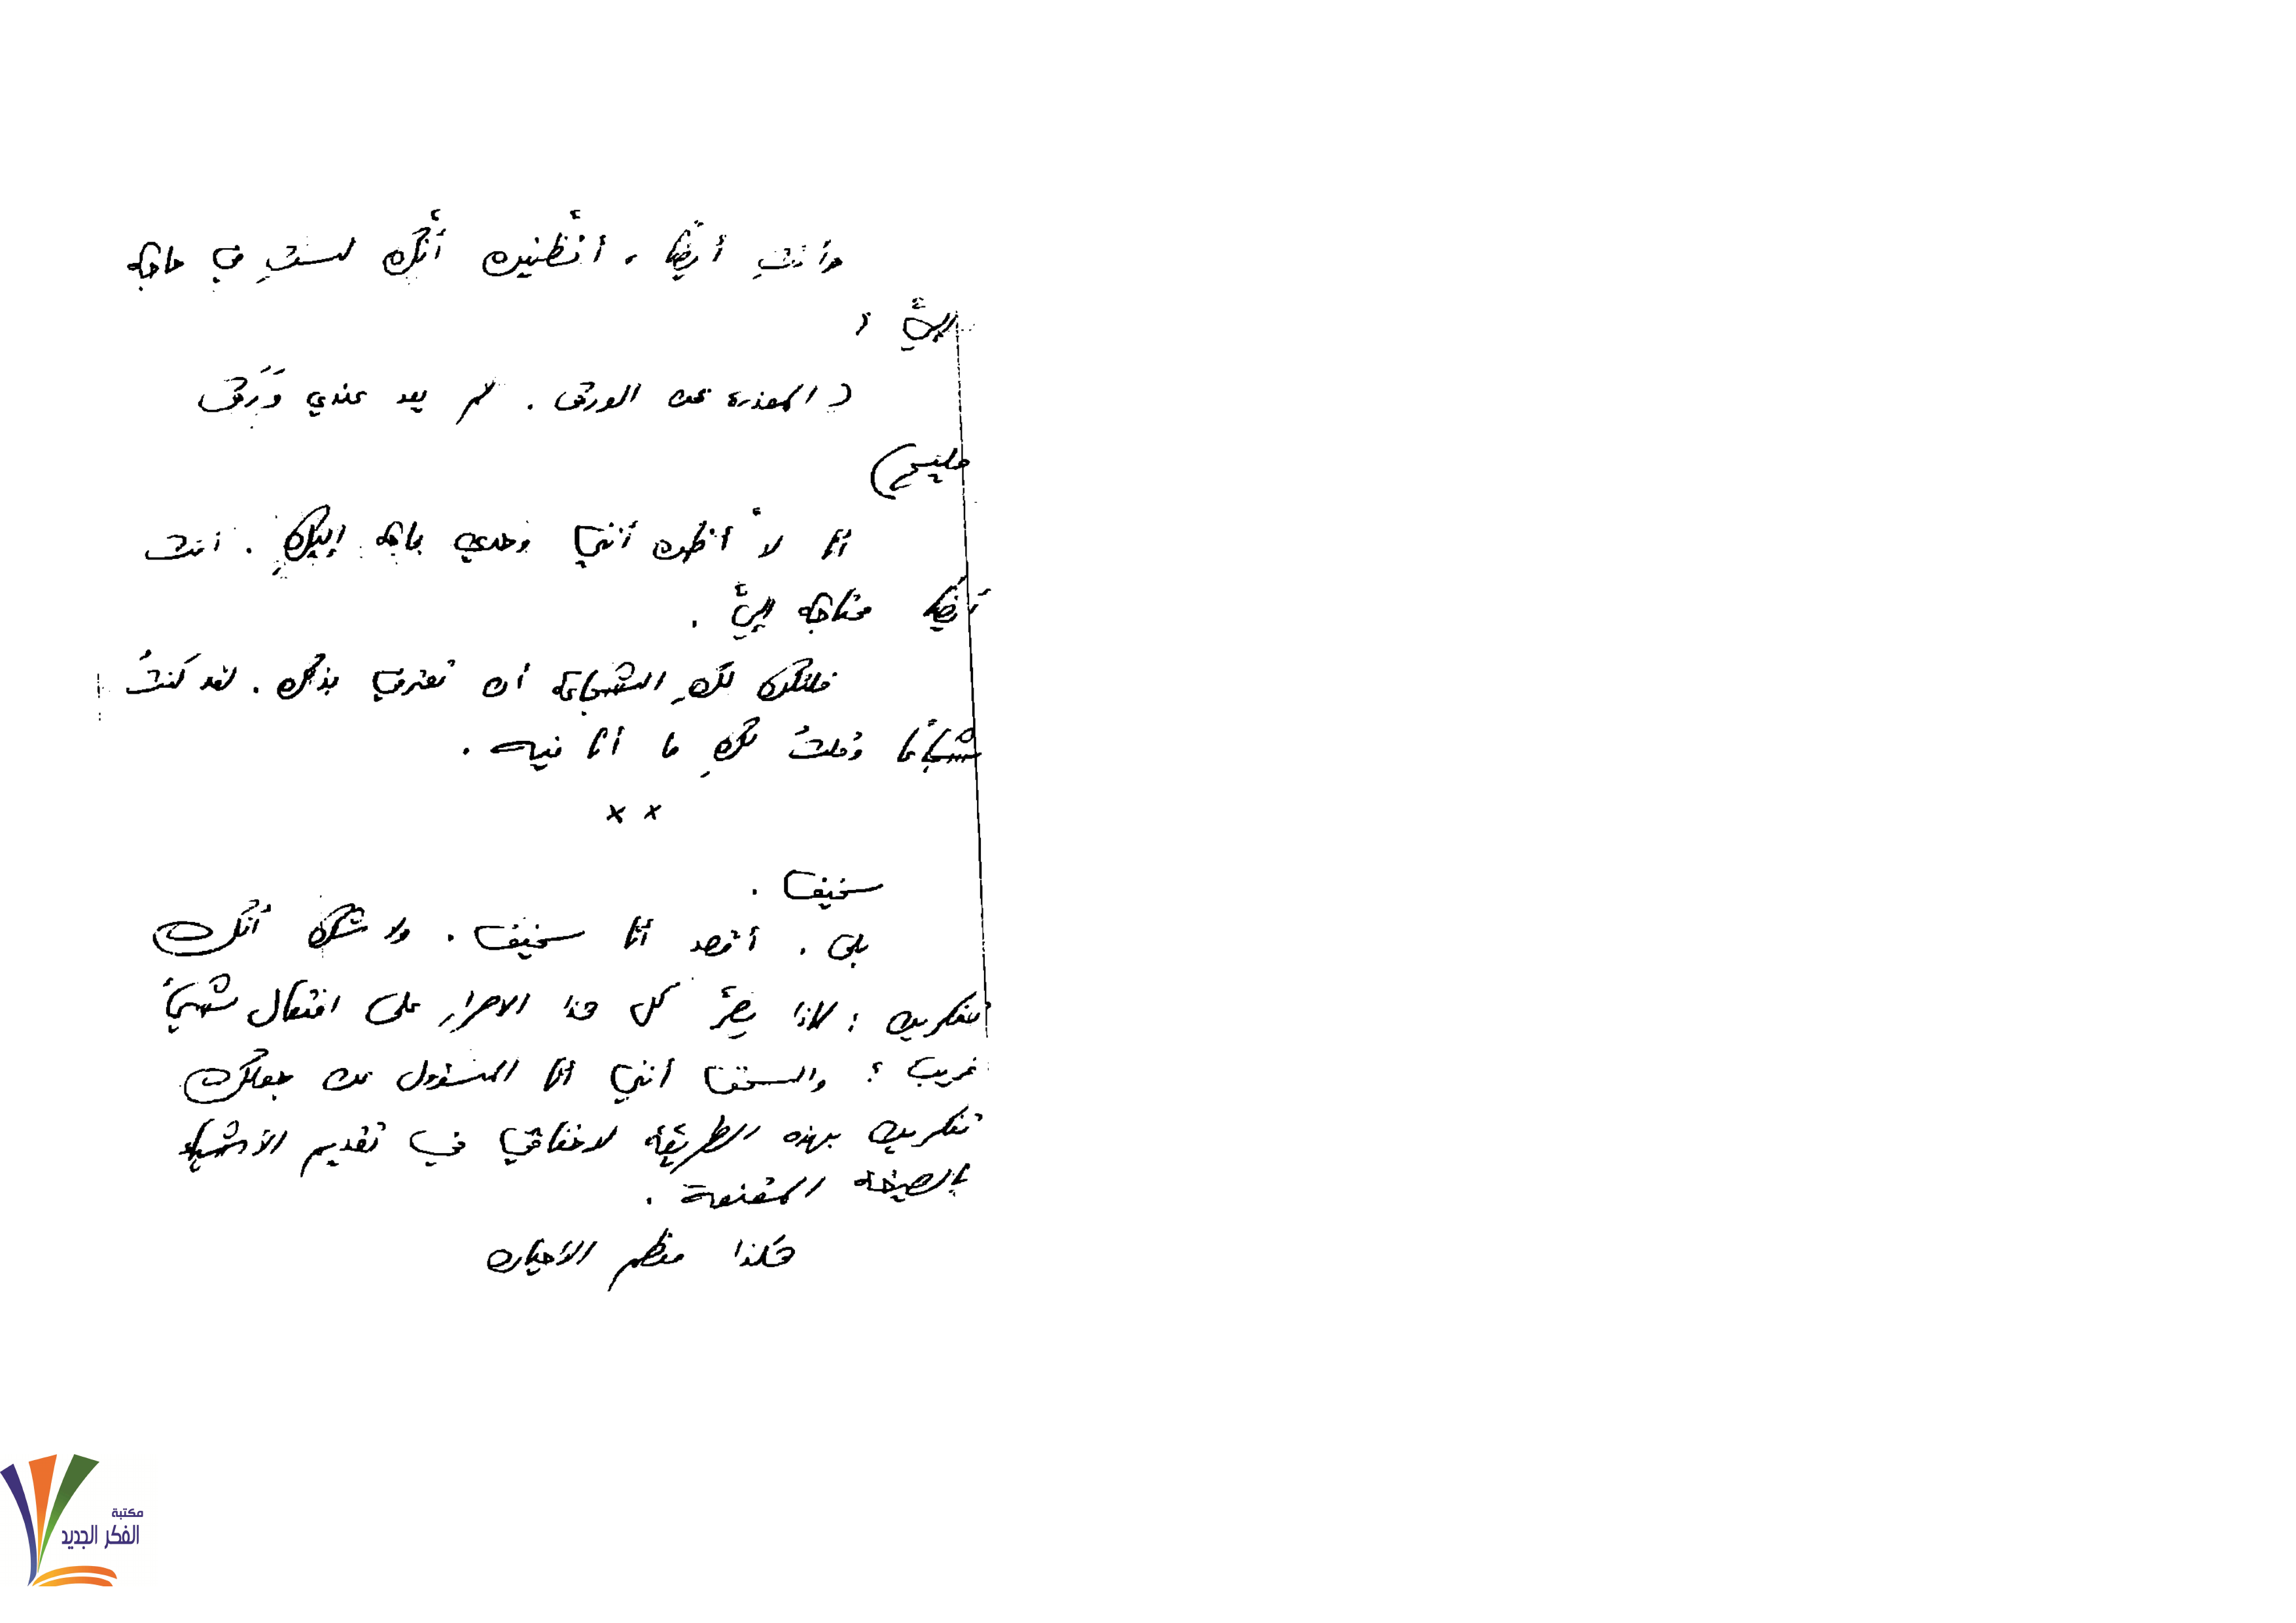 وأنتِ أيضًا، أتظنين أنَّك لستِ في حاجة
إليَّ؟
(المعذرة عن الورق. لم يعد عندي وَرَق
مليح)
أنا لا أظن أنني وحدي بحاجة إليكِ. أنت
أيضًا محتاجة إليَّ.
فلتكن لكِ الشجاعة أن تعترفي بذلك. لقد كنتُ
شجاعًا وقلتُ لكِ ما أنا فيه.
××
سخيف.
بلى. أقصد أنا سخيف. ولا شك أنَّك
تفكرين: لماذا يصرَّ كل هذا الاصرار على افتعال شيءٍ
غريب؟ والحق أنني أنا المسؤول عن جعلك
تفكرين بهذه الطريقة لاخفاقي في تقديم الأشياء
بالصيغة المقنعة.
هكذا معظم الأحيان
مكتبة
الفكر الجديد